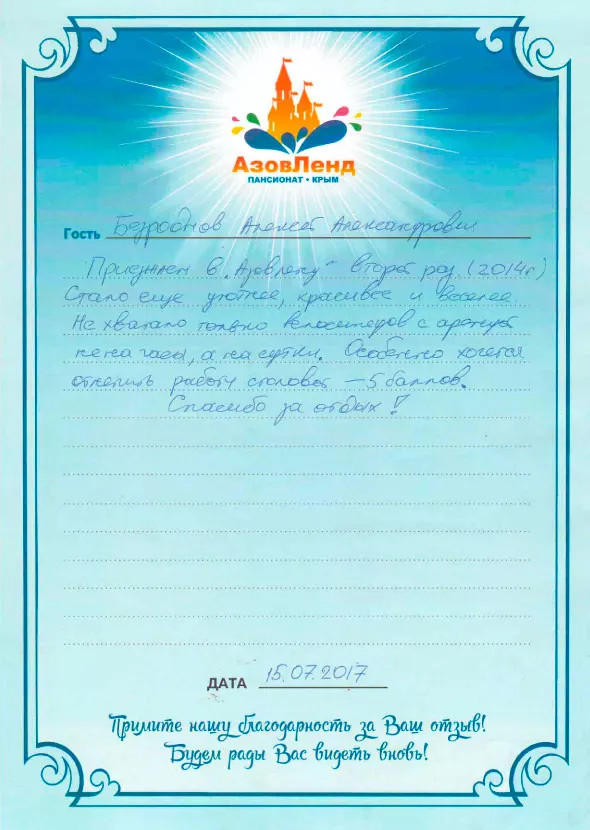 АзовЛенд
ПАНСИОНАТ • КРЫМ
Гость Безроднов Алексей Александрович
Приезжаем в "Азовленд" второй раз. (2014г)
Стало еще уютнее, красивее и веселее.
Не хватало только велосипедов с арендой
не на часы, а на сутки. Особенно хочется
отметить работу столовой – 5 баллов.
Спасибо за отдых!
ДАТА 15.07.2017
Примите нашу благодарность за Ваш отзыв!
Будем рады Вас видеть вновь!